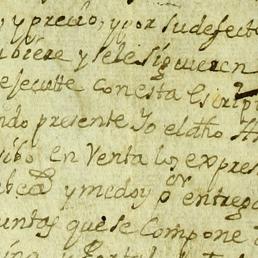 y precio, y por su defecto
ubiere y sele siguieren
execute con esta Escrip
ndo presente Yo el dho
sibo en Venta los expres
y me doy por entrega
untas que se Compone